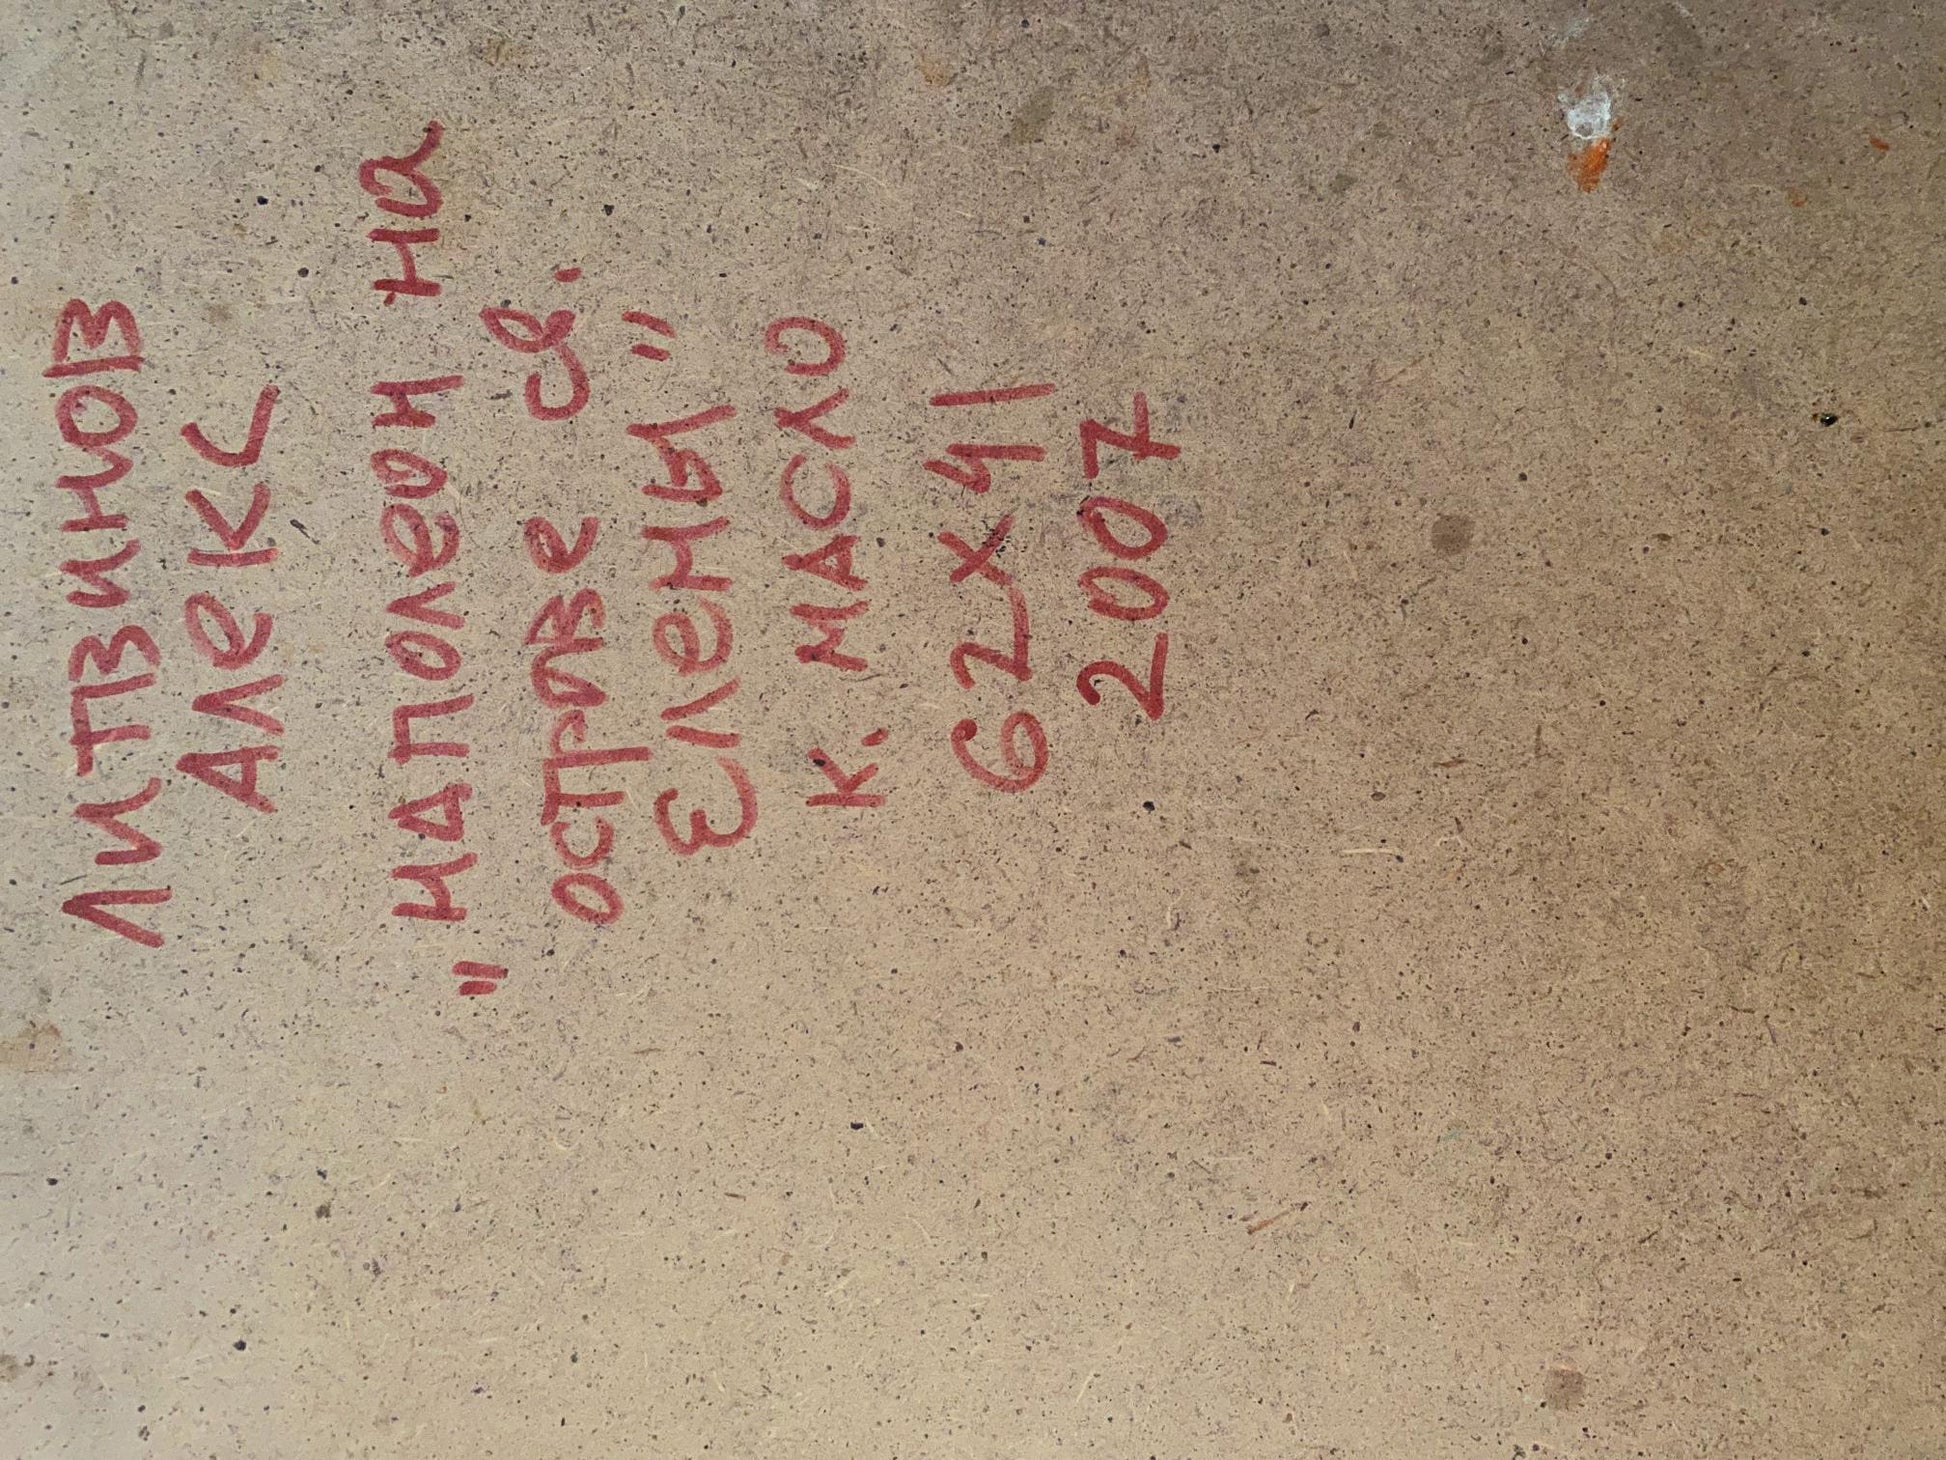 Литвинов
Алекс
"Наполеон на
острове св.
Елены"
к. масло
62х41
2007